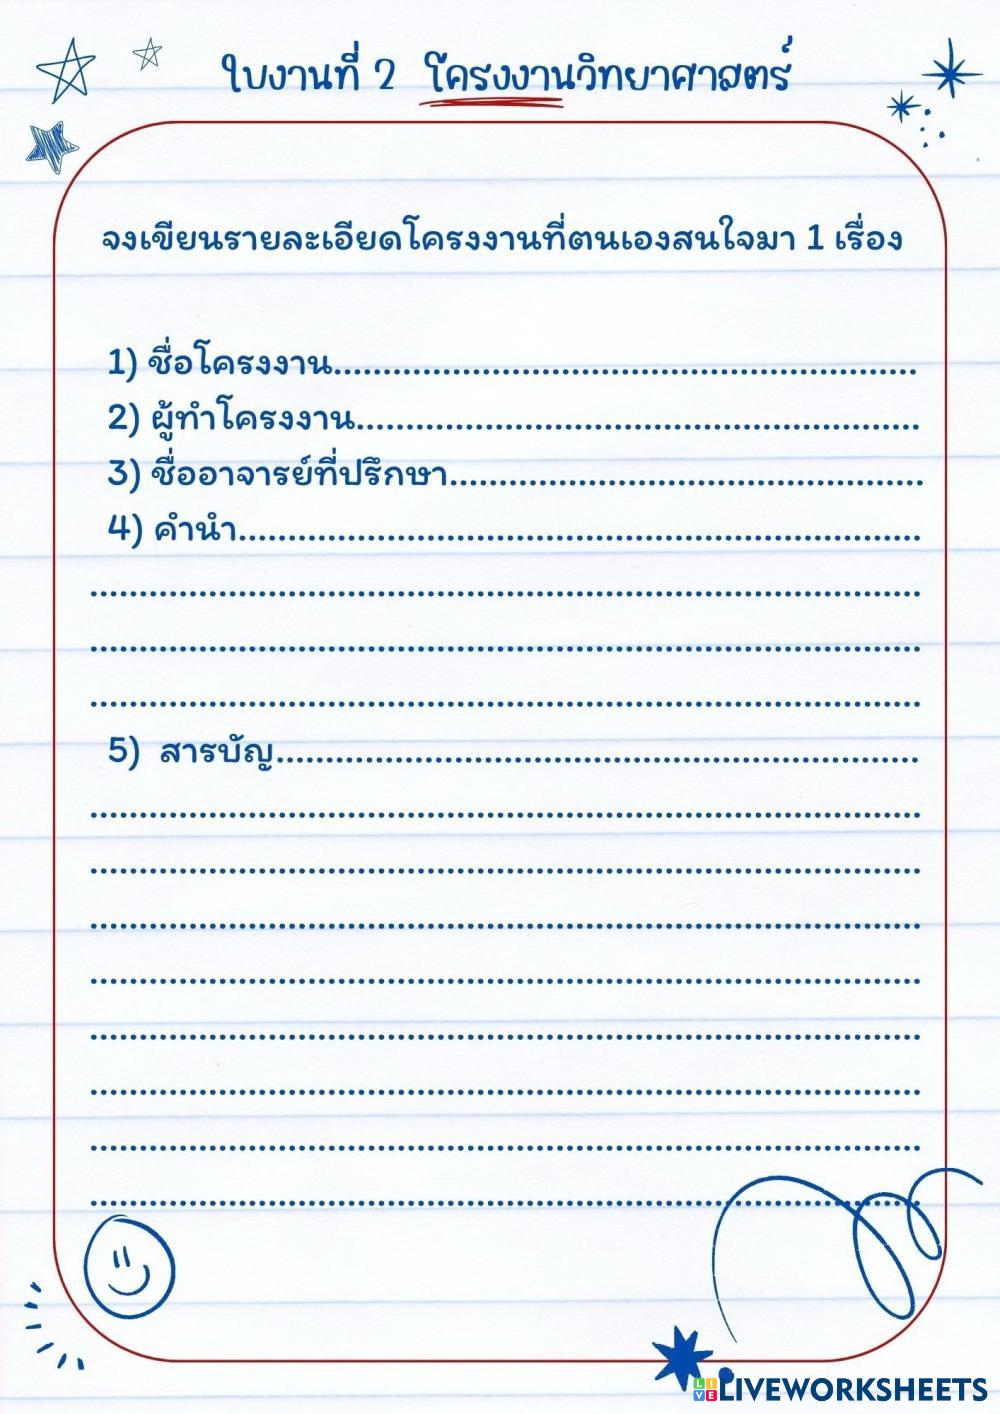 ใบงานที่ 2 โครงงานวิทยาศาสตร์
จงเขียนรายละเอียดโครงงานที่ตนเองสนใจมา 1 เรื่อง
1) ชื่อโครงงาน..........................................................
2) ผู้ทำโครงงาน.........................................................
3) ชื่ออาจารย์ที่ปรึกษา................................................
4) คำนำ....................................................................
...................................................................................
...................................................................................
...................................................................................
5) สารบัญ................................................................
...................................................................................
...................................................................................
...................................................................................
...................................................................................
...................................................................................
...................................................................................
...................................................................................
...................................................................................
LIVE LIVEWORKSHEETS